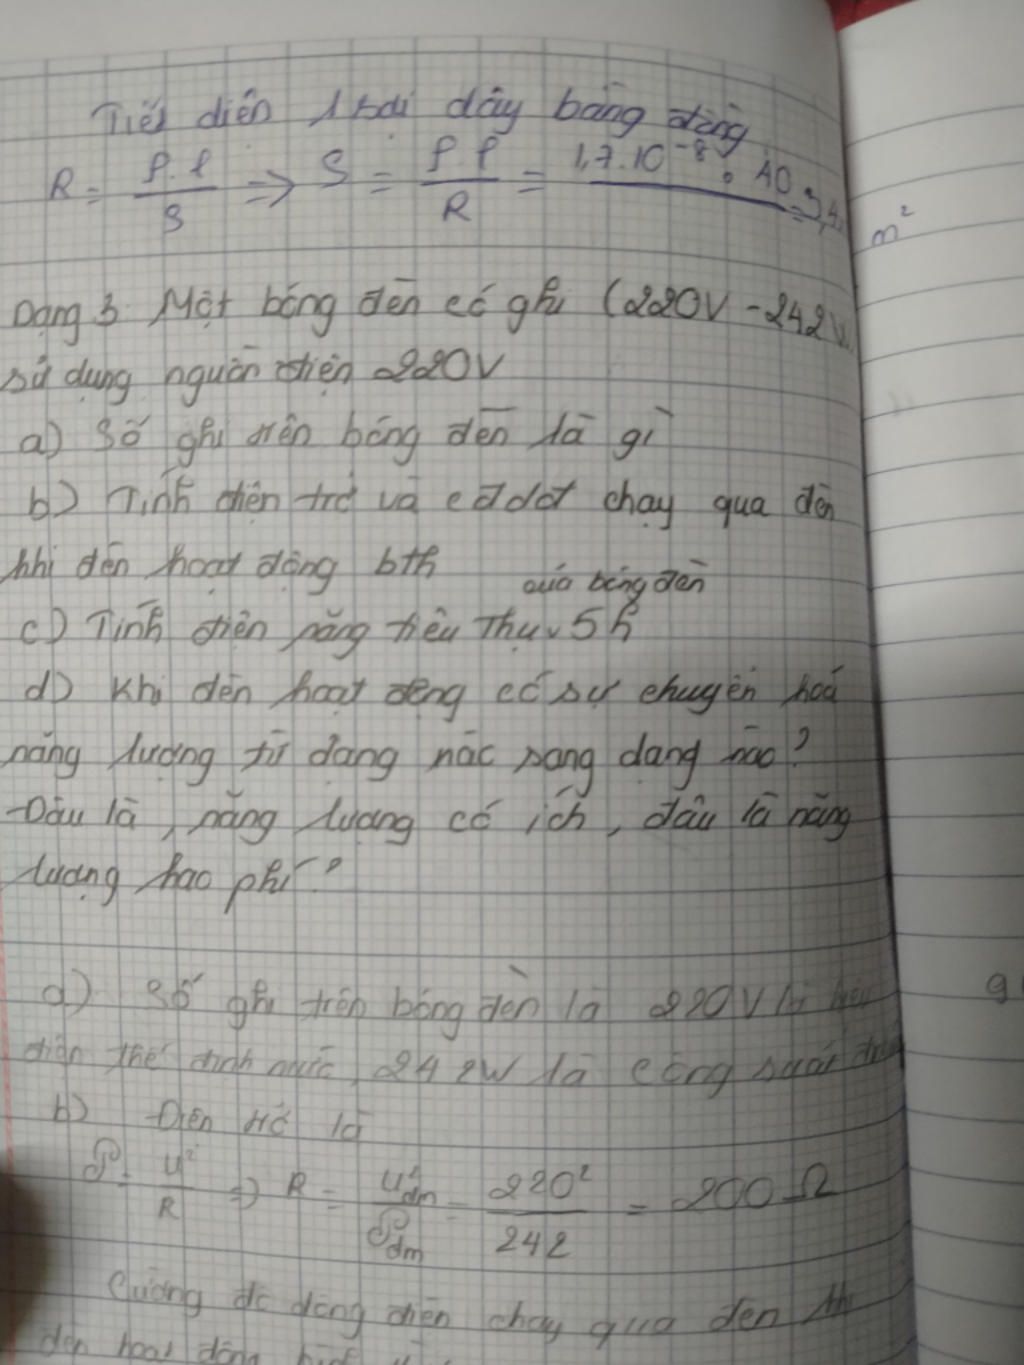 Tiết diện 1 sợi dây bằng đồng
R = ρ.l / S => S = ρ l / R = 1,7.10⁻⁸ . 40 = 3,4 m²
Dạng 3. Một bóng đèn có ghi (220V - 242W
sử dụng nguồn điện 220V
a) Số ghi trên bóng đèn là gì
b) Tính điện trở và cđdđ chạy qua đèn
khi đèn hoạt động bth
của bóng đèn
c) Tính điện năng tiêu thụ v 5h
d) Khi đèn hoạt động có sự chuyển hoá
năng lượng từ dạng nào sang dạng nào?
Đâu là, năng lượng có ích, đâu là năng
lượng hao phí?
a) Số ghi trên bóng đèn là 220V là hiệu
điện thế định mức, 242W là công suất
b) Điện trở là
𝒫 = U² / R => R = U²đm / 𝒫đm = 220² / 242 = 200 Ω
Cường độ dòng điện chạy qua đèn khi
đèn hoạt động